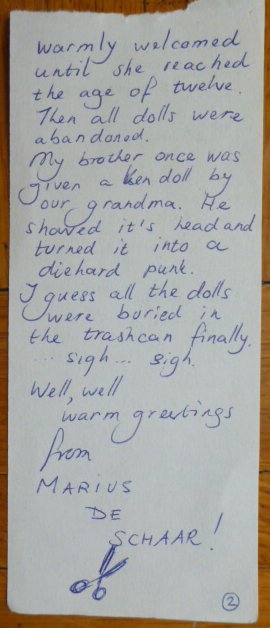 warmly welcomed
until she reached
the age of twelve.
Then all dolls were
abandoned.
My brother once was
given a Ken doll by
our grandma. He
shaved it's head and
turned it into a
diehard punk.
I guess all the dolls
were buried in
the trashcan finally.
... sigh... sigh.
Well, well
warm greetings
from
MARIUS
DE
SCHAAR!
2